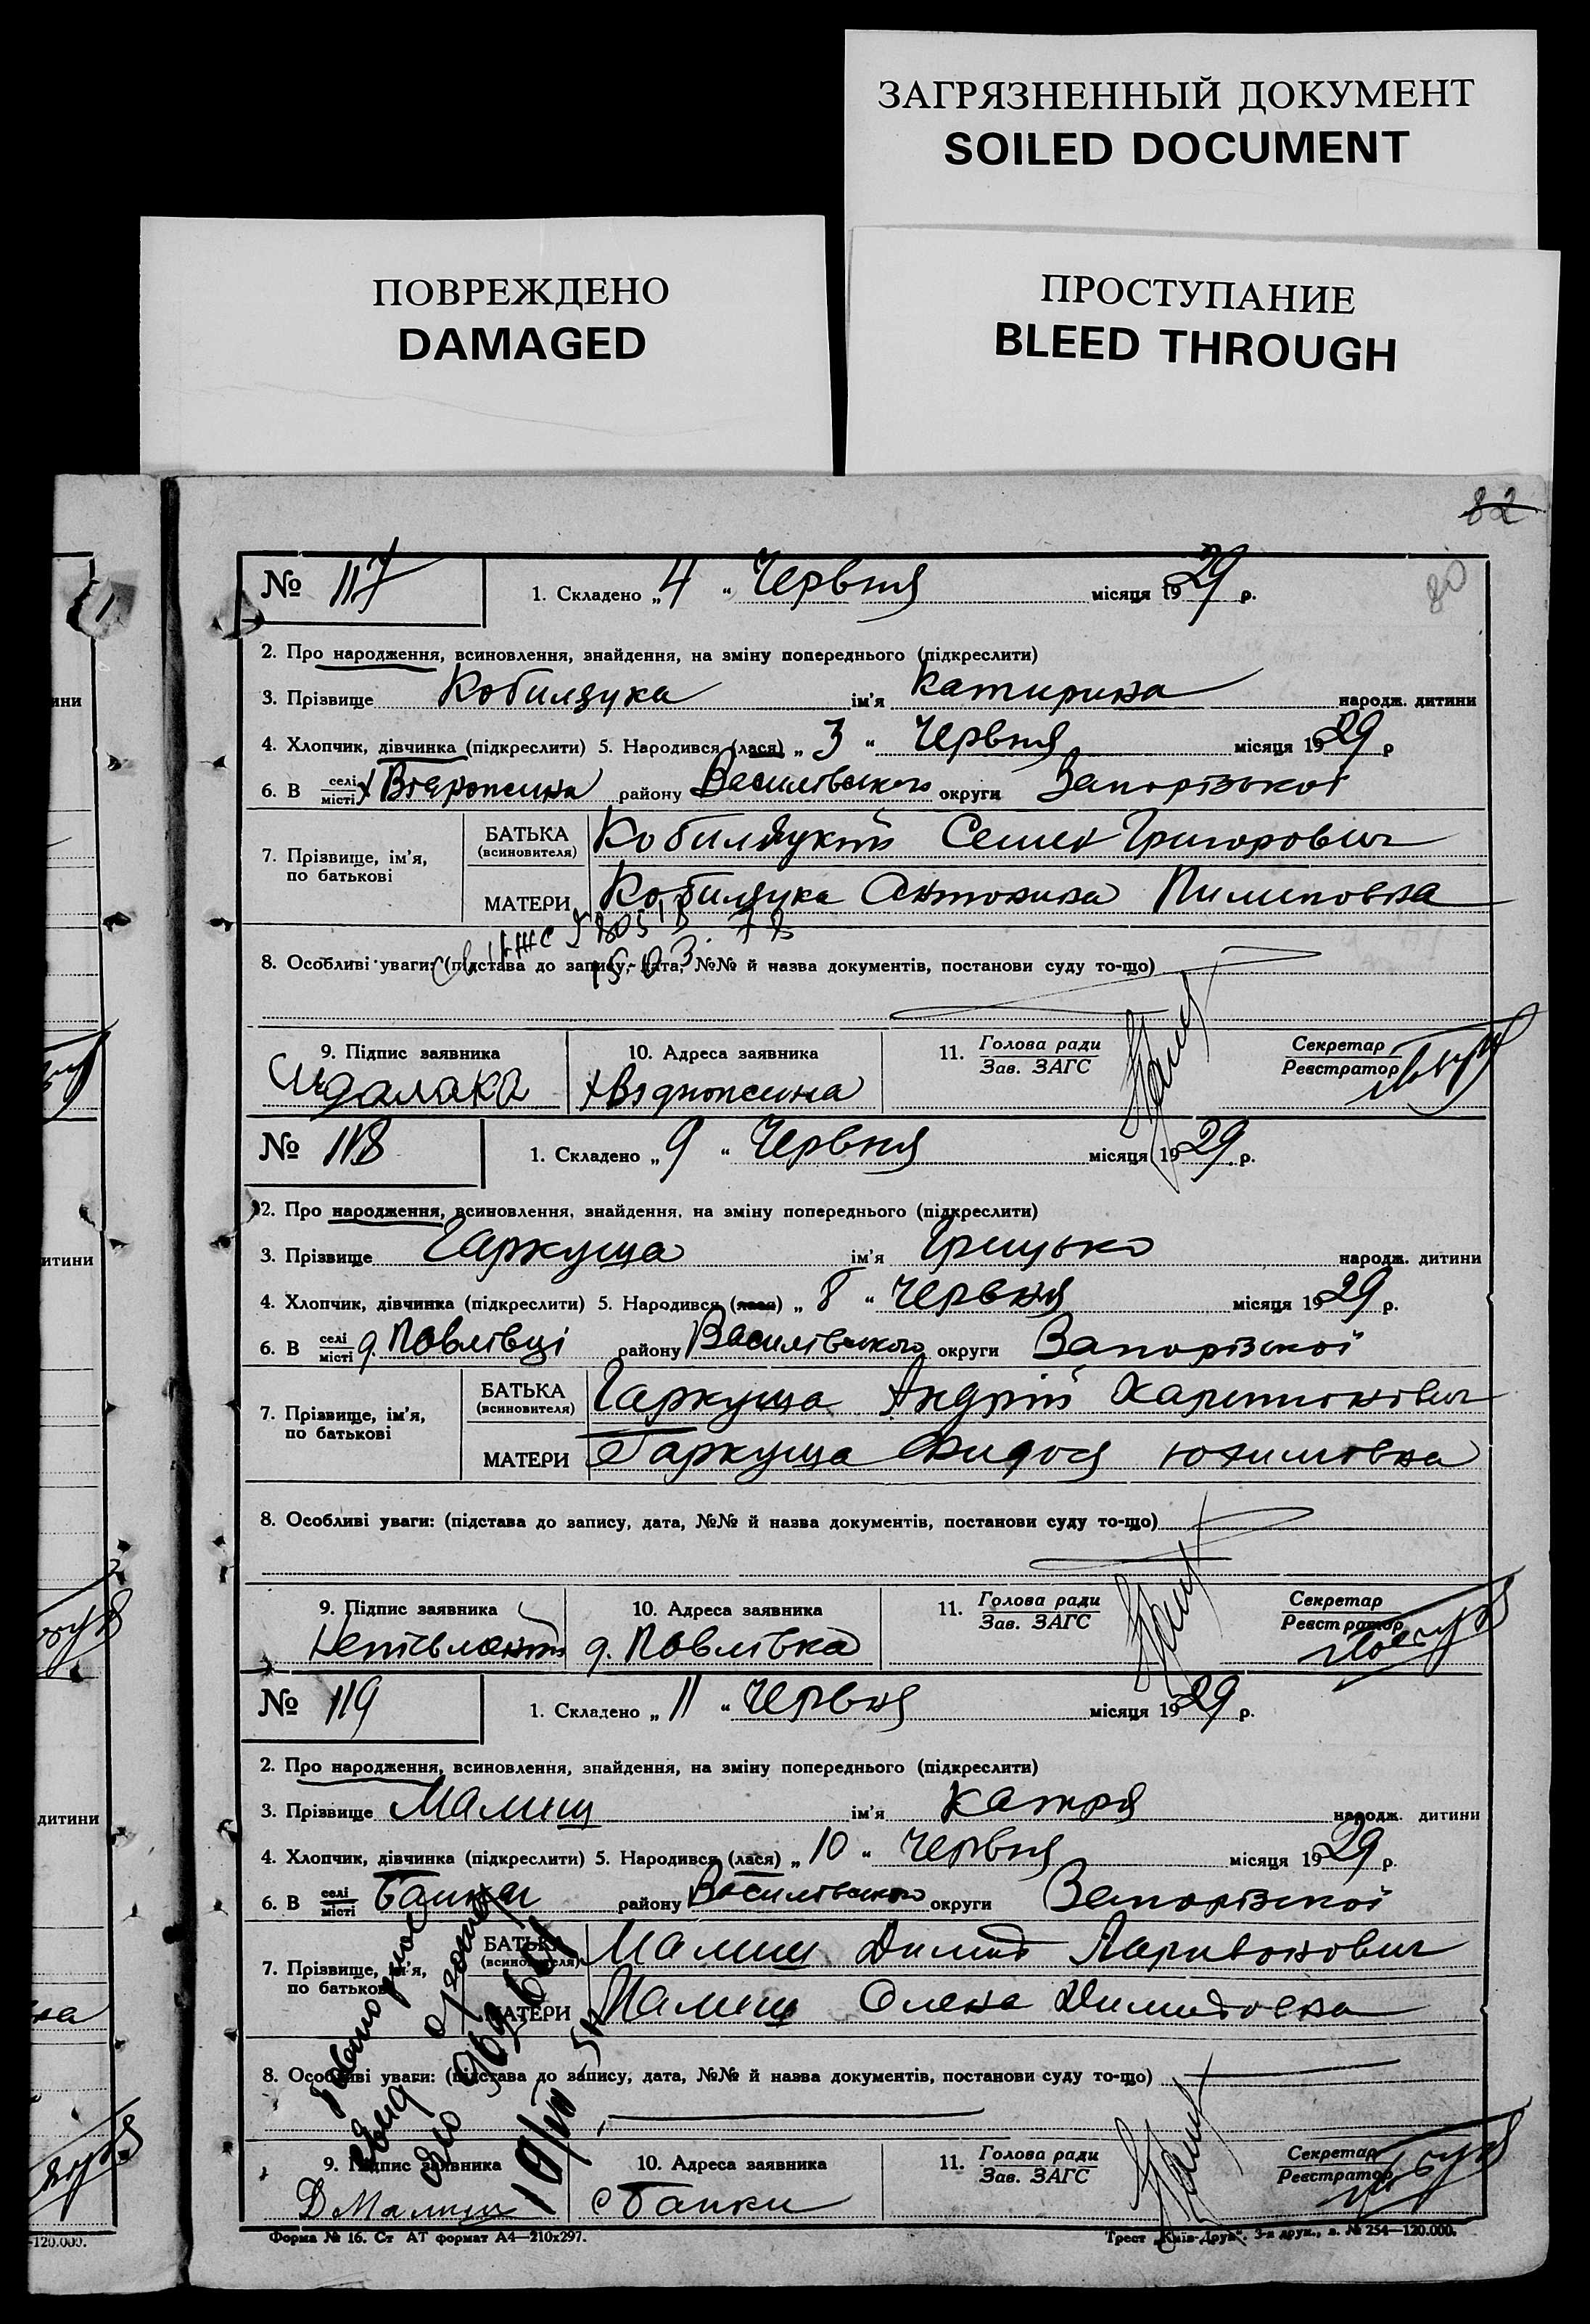 ЗАГРЯЗНЕННЫЙ ДОКУМЕНТ
SOILED DOCUMENT
ПОВРЕЖДЕНО
DAMAGED
ПРОСТУПАНИЕ
BLEED THROUGH
82
80
№ 117 1. Складено „4" Червня місяця 1929 р.
2. Про народження, всиновлення, знайдення, на зміну попереднього (підкреслити)
3. Прізвище Кобилзука ім'я Катирина народж. дитини
4. Хлопчик, дівчинка (підкреслити) 5. Народився (лася) „3" Червня місяця 1929 р
6. В селі місті х району Василівського округи Запорізької
7. Прізвище, ім'я, по батькові БАТЬКА (всиновителя) Семен Григорович
МАТЕРИ Кобилзука Антонина Пилиповна
8. Особливі уваги: (підстава до запису, дата, №№ й назва документів, постанови суду то-що)
9. Підпис заявника 10. Адреса заявника 11. Голова ради Зав. ЗАГС Секретар Реєстратор
№ 118 1. Складено „9" Червня місяця 1929 р.
2. Про народження, всиновлення, знайдення, на зміну попереднього (підкреслити)
3. Прізвище Гаркуша ім'я Грицько народж. дитини
4. Хлопчик, дівчинка (підкреслити) 5. Народився (лася) „8" Червня місяця 1929 р.
6. В селі місті д. Павлівці району Василівського округи Запорізької
7. Прізвище, ім'я, по батькові БАТЬКА (всиновителя) Гаркуша Андрій Харитонович
МАТЕРИ Гаркуша Юхимовна
8. Особливі уваги: (підстава до запису, дата, №№ й назва документів, постанови суду то-що)
9. Підпис заявника 10. Адреса заявника 11. Голова ради Зав. ЗАГС Секретар Реєстратор
д. Павлівка
№ 119 1. Складено „11" Червня місяця 1929 р.
2. Про народження, всиновлення, знайдення, на зміну попереднього (підкреслити)
3. Прізвище Малиш ім'я Катря народж. дитини
4. Хлопчик, дівчинка (підкреслити) 5. Народився (лася) „10" Червня місяця 1929 р.
6. В селі місті Балки району Василівського округи Запорізької
7. Прізвище, ім'я, по батькові БАТЬКА (всиновителя) Малиш Димид Ларивонович
МАТЕРИ Малиш Олена Димидовна
8. Особливі уваги: (підстава до запису, дата, №№ й назва документів, постанови суду то-що)
9. Підпис заявника 10. Адреса заявника 11. Голова ради Зав. ЗАГС Секретар Реєстратор
Д Малиш с Балки
Форма № 16. Ст АТ формат А4—210х297. Трест „Київ-Друк". 3-я друк., з. № 254—120.000.